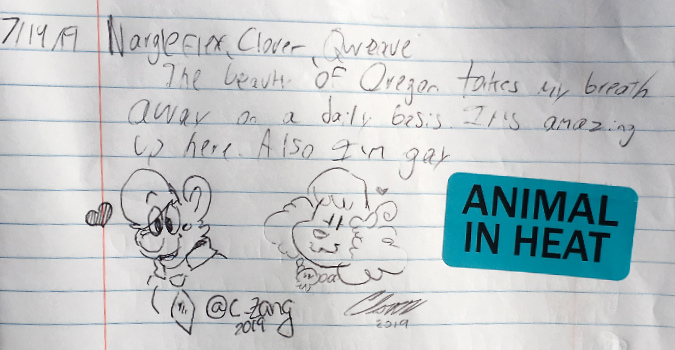 7/19/19 Nargleflex, Clover, Qweave
The beauty of Oregon takes my breath
away on a daily basis. It's amazing
up here. Also I'm gay
@C_Zang
2019
2019
ANIMAL
IN HEAT